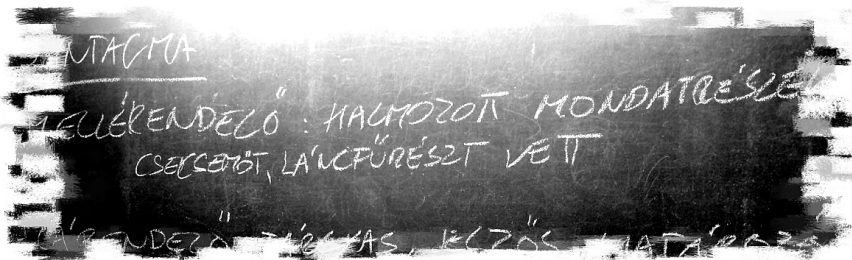 NTAGMA
MELLÉRENDELŐ: HALMOZOTT MONDATRÉSZEK
CSECSEMŐT, LÁNCFŰRÉSZT VETT
LÁRENDELŐ TÁRGYAS, JELZŐS,